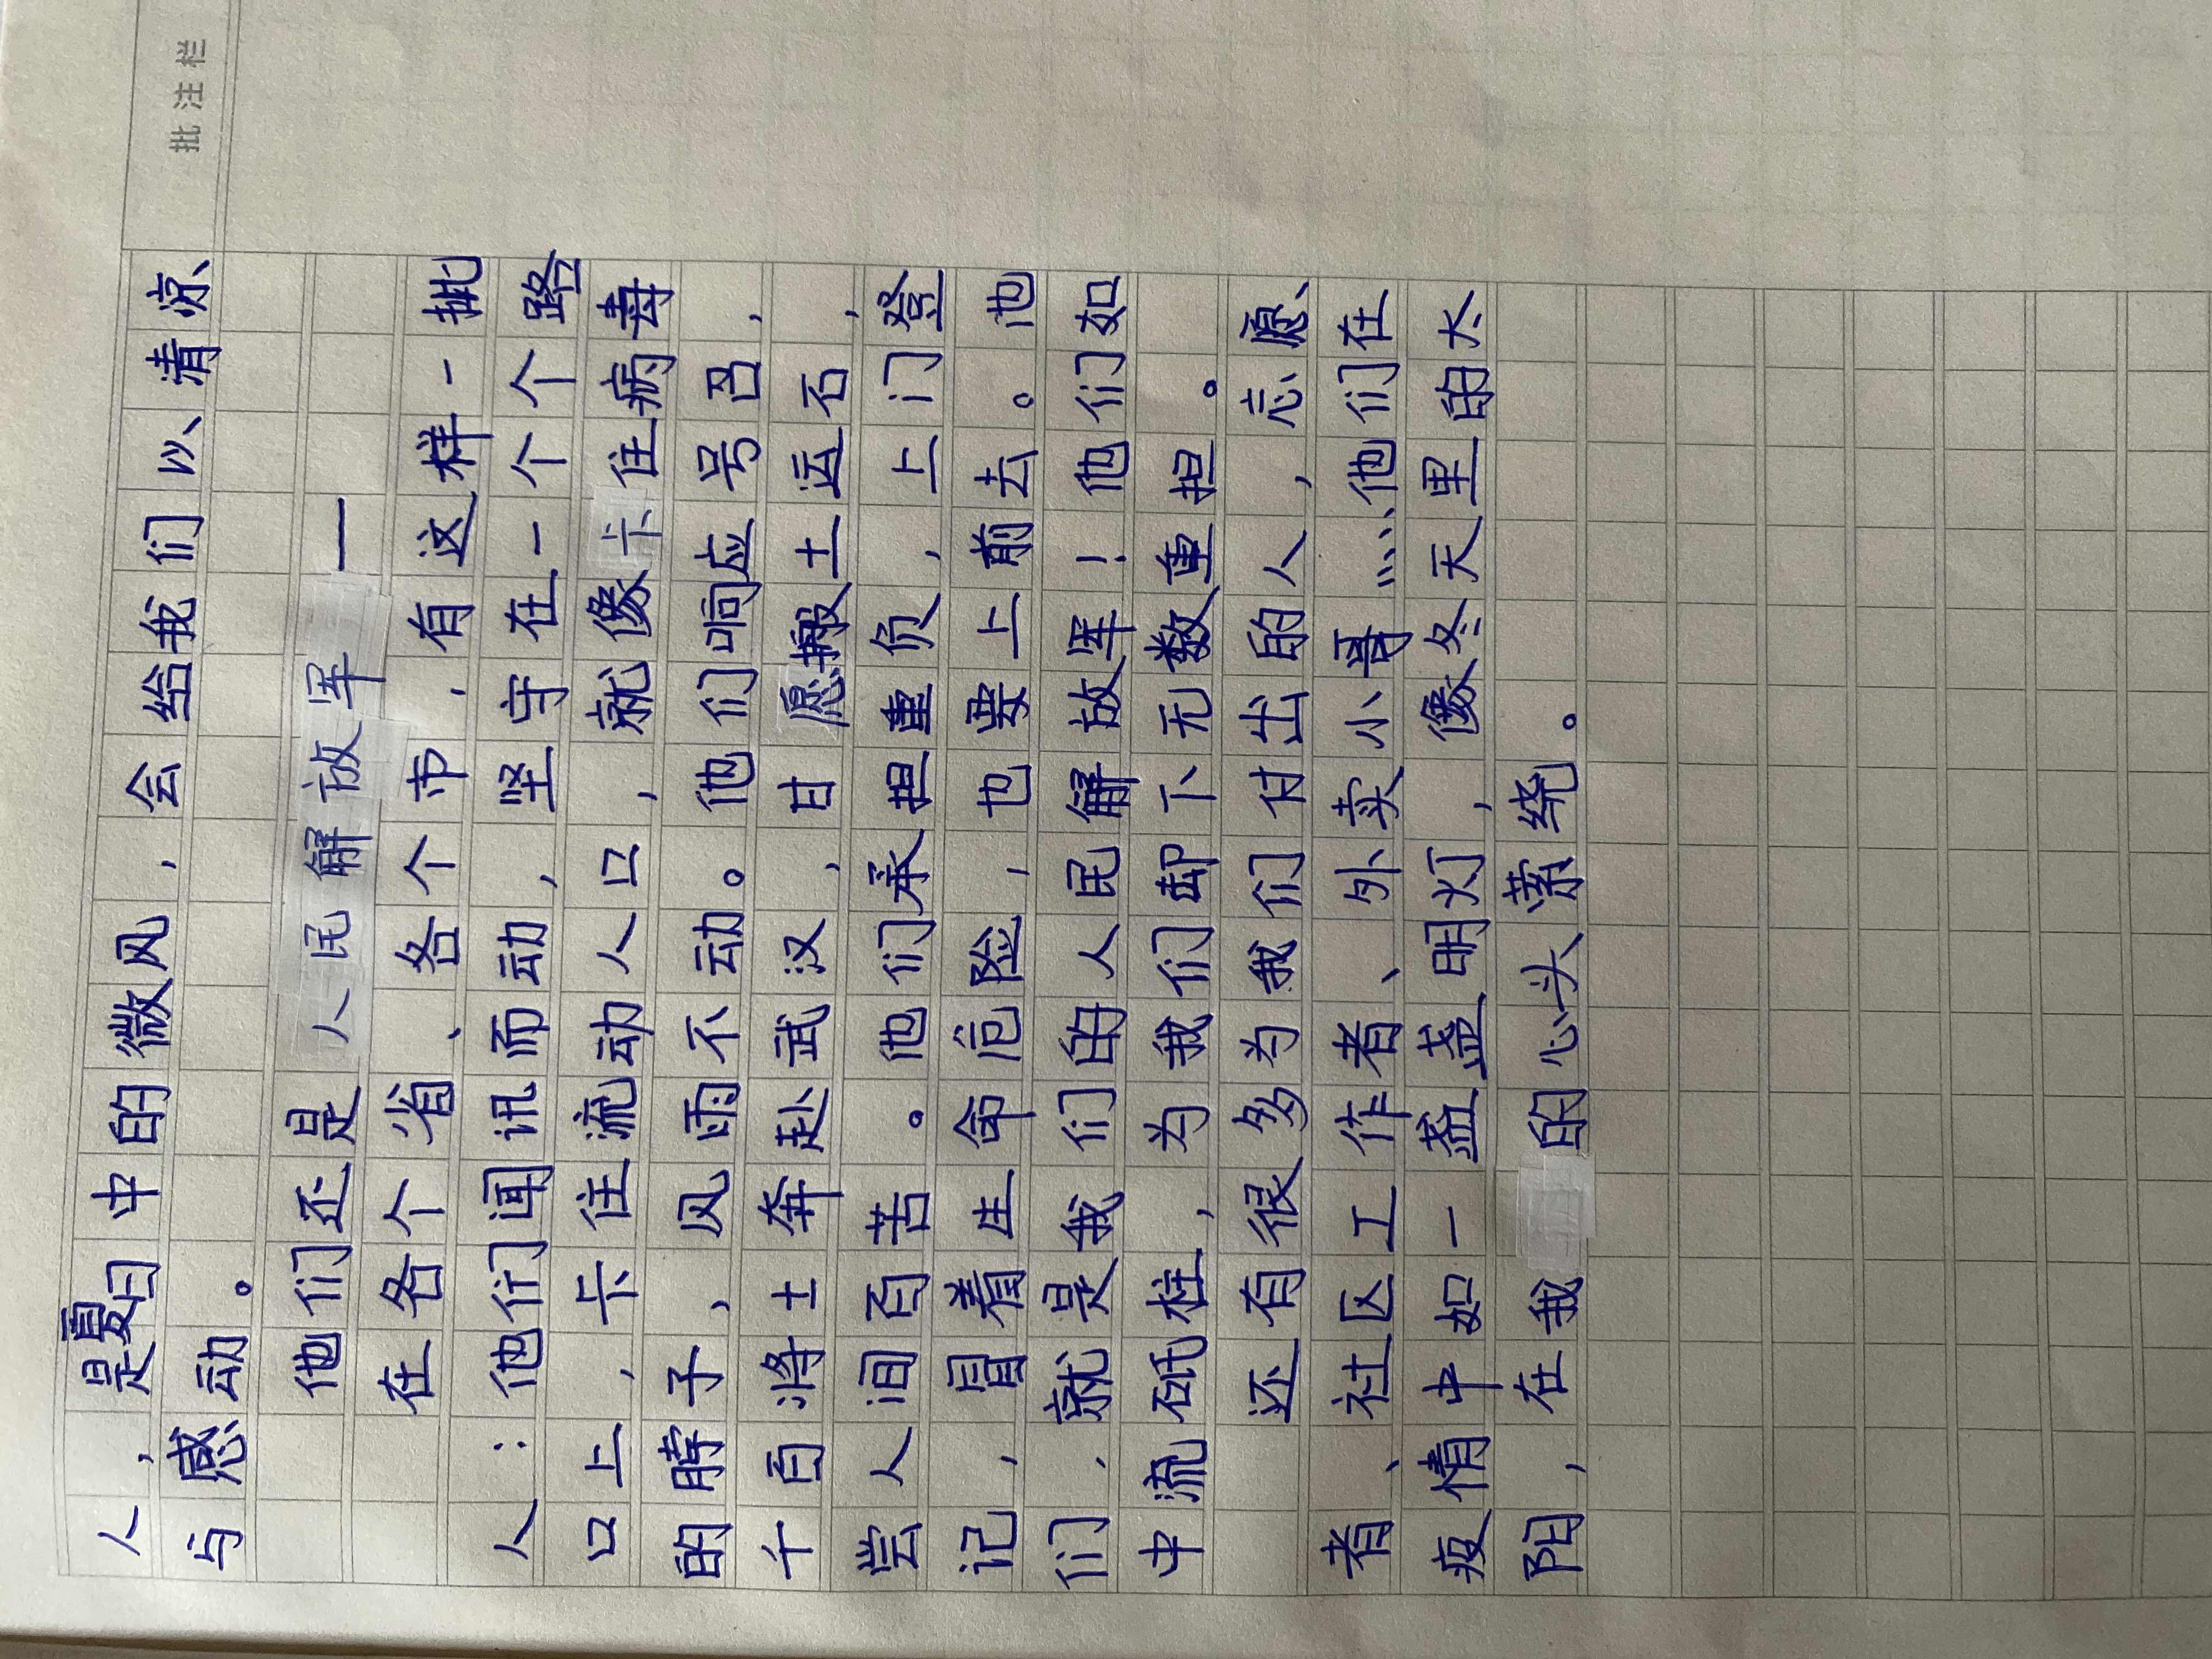 批注栏
人,是夏日中的微风,会给我们以清凉
与感动。
他们还是人民解放军—
在各个省、各个市,有这样一批
人:他们闻讯而动,坚守在一个个路
口上,卡住流动人口,就像卡住病毒
的脖子,风雨不动。他们响应号召,
千百将士奔赴武汉,甘愿搬土运石,
尝人间百苦。他们承担重负,上门登
记,冒着生命危险,也要上前去。他
们,就是我们的人民解放军!他们如
中流砥柱,为我们卸下无数重担。
还有很多为我们付出的人,志愿
者、社区工作者、外卖小哥……他们在
疫情中如一盏盏明灯,像冬天里的太
阳,在我的心头萦绕。